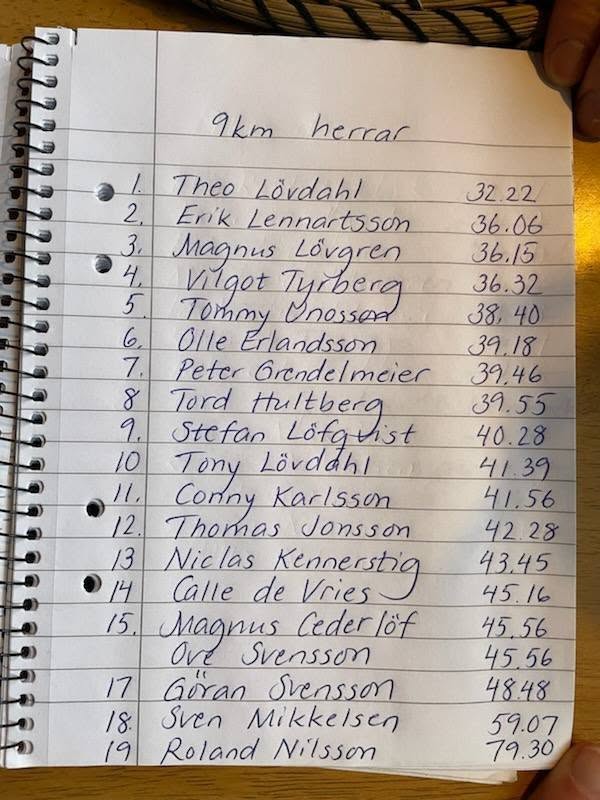 9km herrar
1. Theo Lövdahl 32.22
2. Erik Lennartsson 36.06
3. Magnus Lövgren 36.15
4. Vilgot Tyrberg 36.32
5. Tommy Onosson 38.40
6. Olle Erlandsson 39.18
7. Peter Grendelmeier 39.46
8 Tord Hultberg 39.55
9. Stefan Löfqvist 40.28
10 Tony Lövdahl 41.39
11. Conny Karlsson 41.56
12. Thomas Jonsson 42.28
13 Niclas Kennerstig 43.45
14 Calle de Vries 45.16
15. Magnus Cederlöf 45.56
Ove Svensson 45.56
17 Göran Svensson 48.48
18. Sven Mikkelsen 59.07
19 Roland Nilsson 79.30